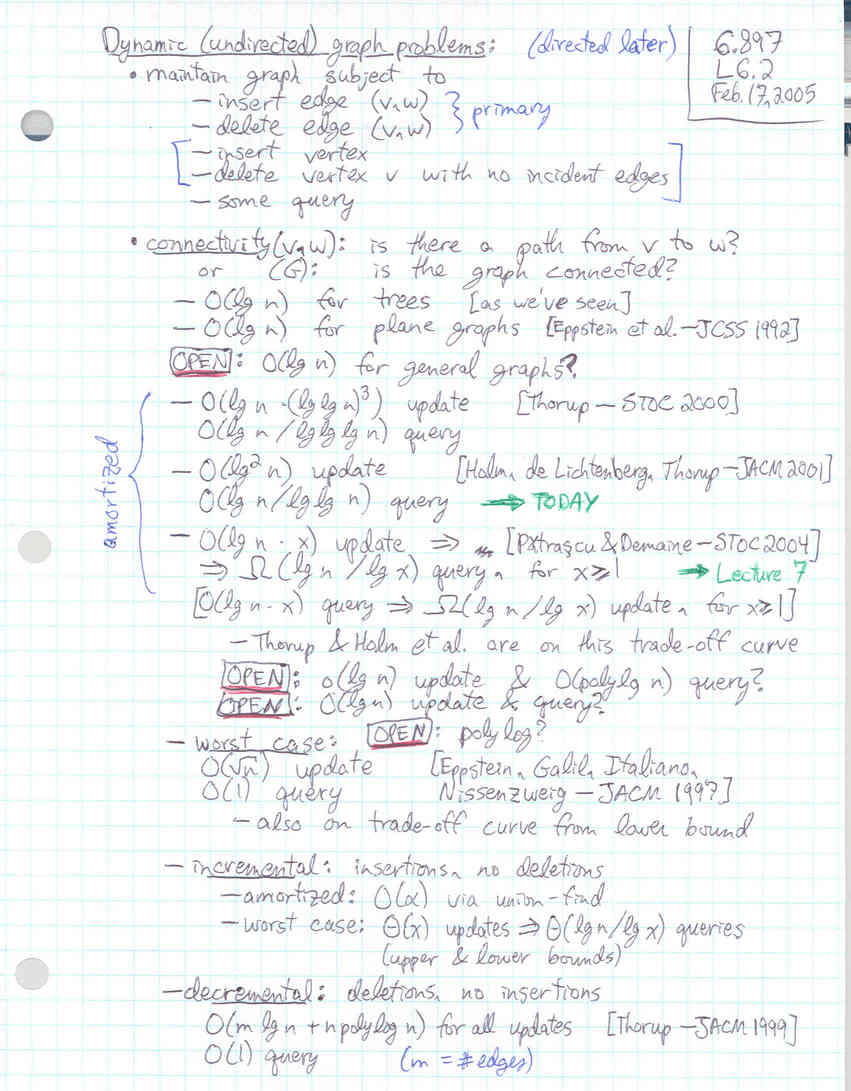 Dynamic (undirected) graph problems: (directed later)
6.897
L6.2
Feb. 17, 2005
• maintain graph subject to
— insert edge (v,w)
— delete edge (v,w) } primary
[— insert vertex
— delete vertex v with no incident edges]
— some query
• connectivity (v,w): is there a path from v to w?
or (G): is the graph connected?
— O(lg n) for trees [as we've seen]
— O(lg n) for plane graphs [Eppstein et al. — JCSS 1992]
OPEN: O(lg n) for general graphs?
amortized
— O(lg n · (lg lg n)³) update [Thorup — STOC 2000]
O(lg n / lg lg lg n) query
— O(lg² n) update [Holm, de Lichtenberg, Thorup — JACM 2001]
O(lg n / lg lg n) query → TODAY
— O(lg n · x) update ⇒ [Pătraşcu & Demaine — STOC 2004]
⇒ Ω(lg n / lg x) query, for x ≥ 1 → Lecture 7
[O(lg n · x) query ⇒ Ω(lg n / lg x) update, for x ≥ 1]
— Thorup & Holm et al. are on this trade-off curve
OPEN: o(lg n) update & O(polylg n) query?
OPEN: O(lg n) update & query?
— worst case: OPEN: polylog?
O(√n) update [Eppstein, Galil, Italiano,
O(1) query Nissenzweig — JACM 1997]
— also on trade-off curve from lower bound
— incremental: insertions, no deletions
— amortized: O(α) via union-find
— worst case: Θ(x) updates ⇒ Θ(lg n / lg x) queries
(upper & lower bounds)
— decremental: deletions, no insertions
O(m lg n + n polylog n) for all updates [Thorup — JACM 1999]
O(1) query (m = # edges)